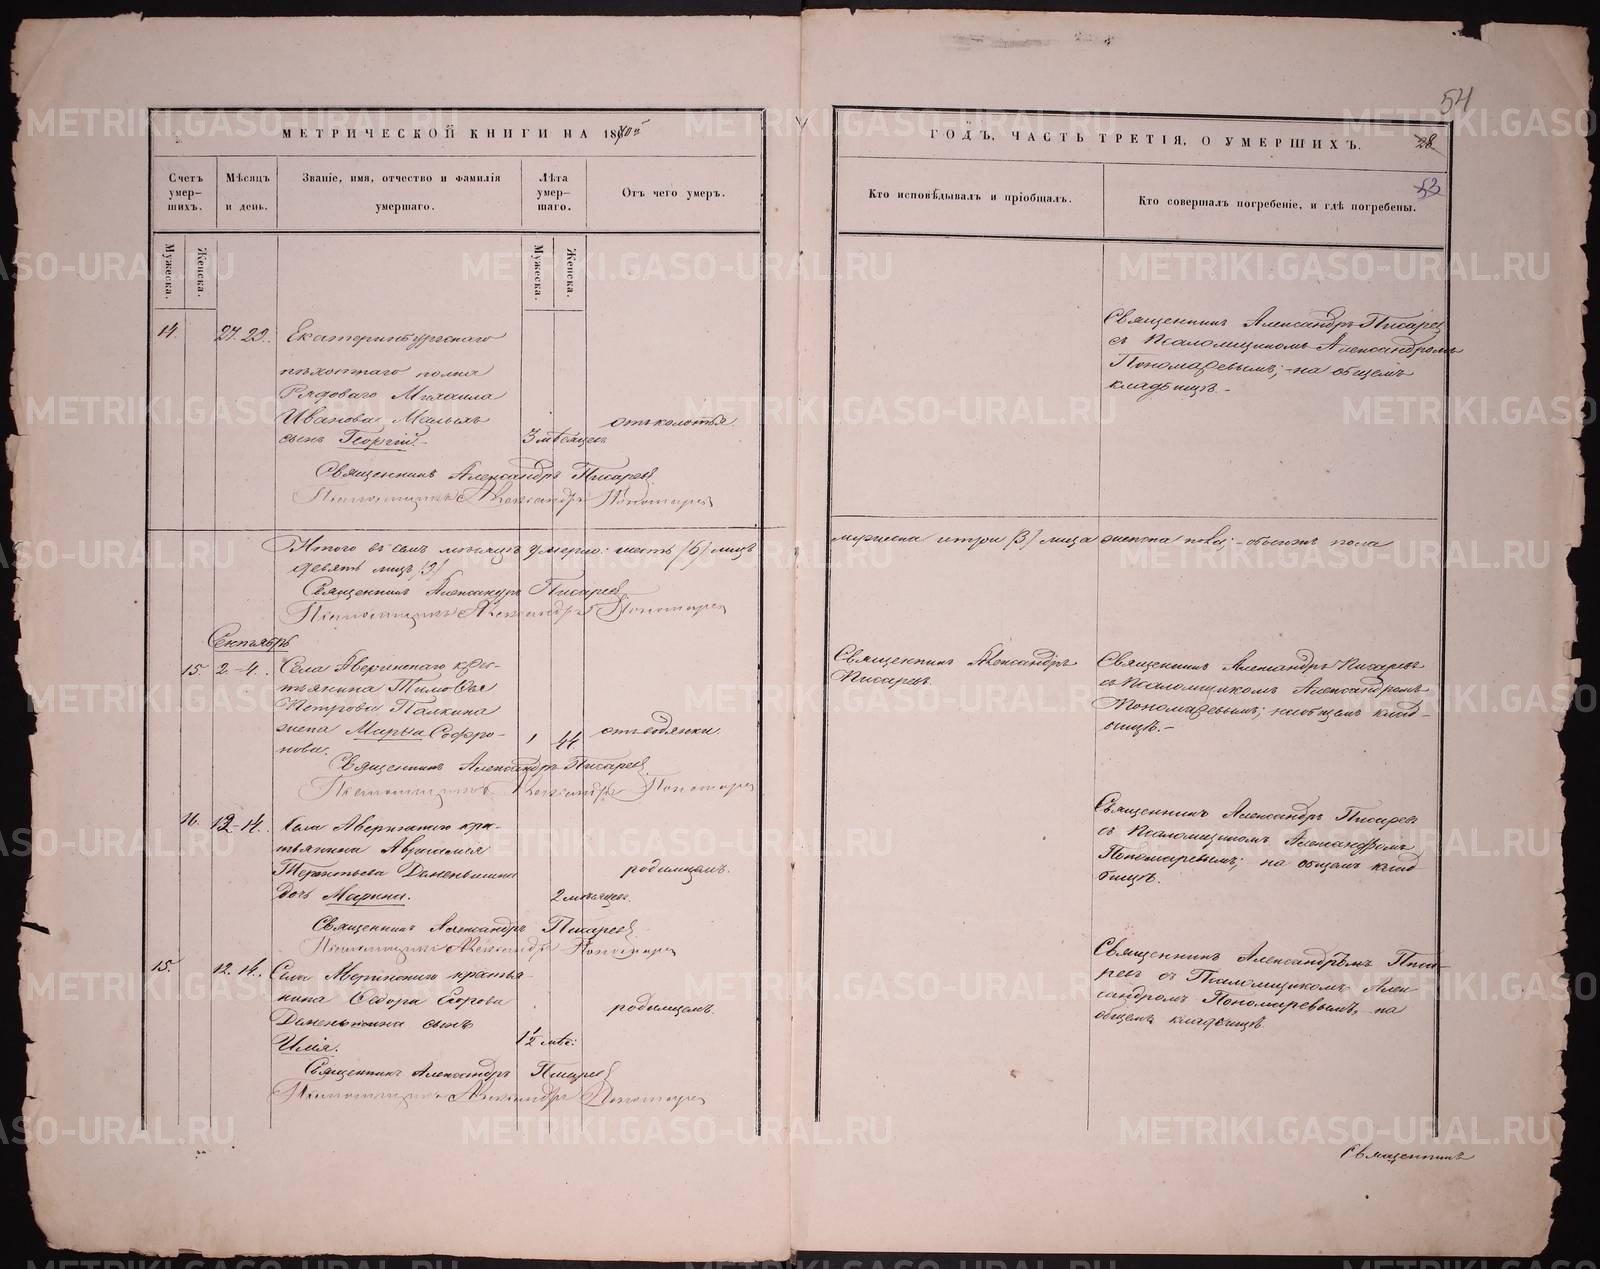 54
МЕТРИЧЕСКОЙ КНИГИ НА 1870й
ГОДЪ, ЧАСТЬ ТРЕТІЯ, О УМЕРШИХЪ.
28
53
Счетъ умер-
шихъ.
Мѣсяцъ
и день.
Званіе, имя, отчество и фамилія
умершаго.
Лѣта
умер-
шаго.
Отъ чего умеръ.
Кто исповѣдывалъ и пріобщалъ.
Кто совершалъ погребеніе, и гдѣ погребены.
Мужеска.
Женска.
Мужеска.
Женска.
14.
27. 29.
Екатеринбургскаго
пѣхотнаго полка
Рядоваго Михаила
Иванова Малыхъ
сынъ Георгій.-
3 мѣсяцевъ
отъ колотья
Священникъ Александръ Писаревъ
съ Псаломщикомъ Александромъ
Пономаревымъ; на общемъ
кладбищѣ.-
Священникъ Александръ Писаревъ
Псаломщикъ Александръ Пономаревъ
Итого въ семъ мѣсяцѣ умерло: шесть /6/ лицъ
мужеска и три /3/ лица женска пола; - обоего пола
девять лицъ /9/
Священникъ Александръ Писаревъ
Псаломщикъ Александръ Пономаревъ
Сентябрь
15
2-4.
Села Аверинскаго крес-
тьянина Тимофея
Петрова Палкина
жена Марья Софро-
нова.
44
отъ водянки.
Священникъ Александръ
Писаревъ.
Священникъ Александръ Писаревъ
съ Псаломщикомъ Александромъ
Пономаревымъ; на общемъ клад-
бищѣ.-
Священникъ Александръ Писаревъ
Псаломщикъ Александръ Пономаревъ
16.
12-14.
Села Аверинскаго кре-
стьянина
Терентьева
дочь Марина.
2 мѣсяцевъ.
родимцемъ.
Священникъ Александръ Писаревъ
съ Псаломщикомъ Александромъ
Пономаревымъ; на общемъ клад
бищѣ.
Священникъ Александръ Писаревъ
Псаломщикъ Александръ Пономаревъ
15.
12. 14.
Села Аверинскаго крестья-
нина Федора Егорова
сынъ
Илія.
1/2 мѣс:
родимцемъ.
Священникъ Александръ Писа-
ревъ съ Псаломщикомъ Алек
сандромъ Пономаревымъ, на
общемъ кладбищѣ
Священникъ Александръ Писаревъ
Псаломщикъ Александръ Пономаревъ
Священникъ
METRIKI.GASO-URAL.RU